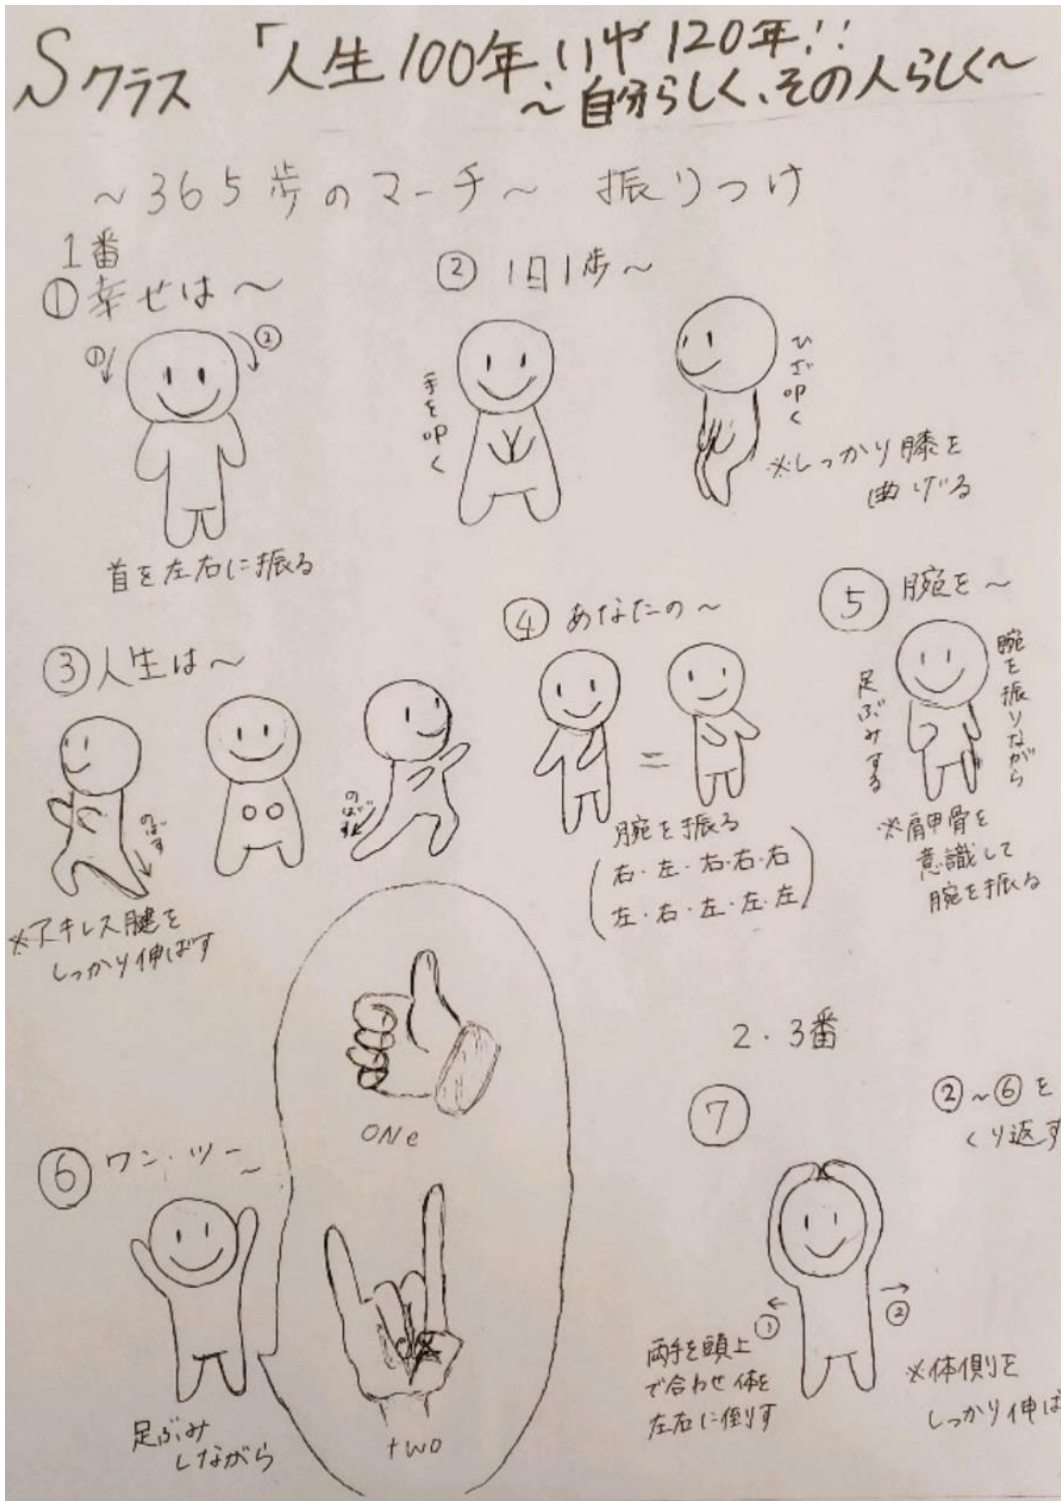 Sクラス 「人生100年,いや120年!!
～自分らしく、その人らしく～
～365歩のマーチ～ 振りつけ
1番
①幸せは～
① ②
首を左右に振る
② 1日1歩～
手を叩く
ひざ叩く
※しっかり膝を
曲げる
③人生は～
のばす
のばす
※アキレス腱を
しっかり伸ばす
④ あなたの～
=
腕を振る
(右・左・右・右・右
左・右・左・左・左)
⑤ 腕を～
足ぶみする
腕を振りながら
※肩甲骨を
意識して
腕を振る
⑥ ワン・ツー～
足ぶみ
しながら
ONe
two
2・3番
⑦
②～⑥を
くり返す
① ②
両手を頭上
で合わせ体を
左右に倒す
※体側を
しっかり伸ば